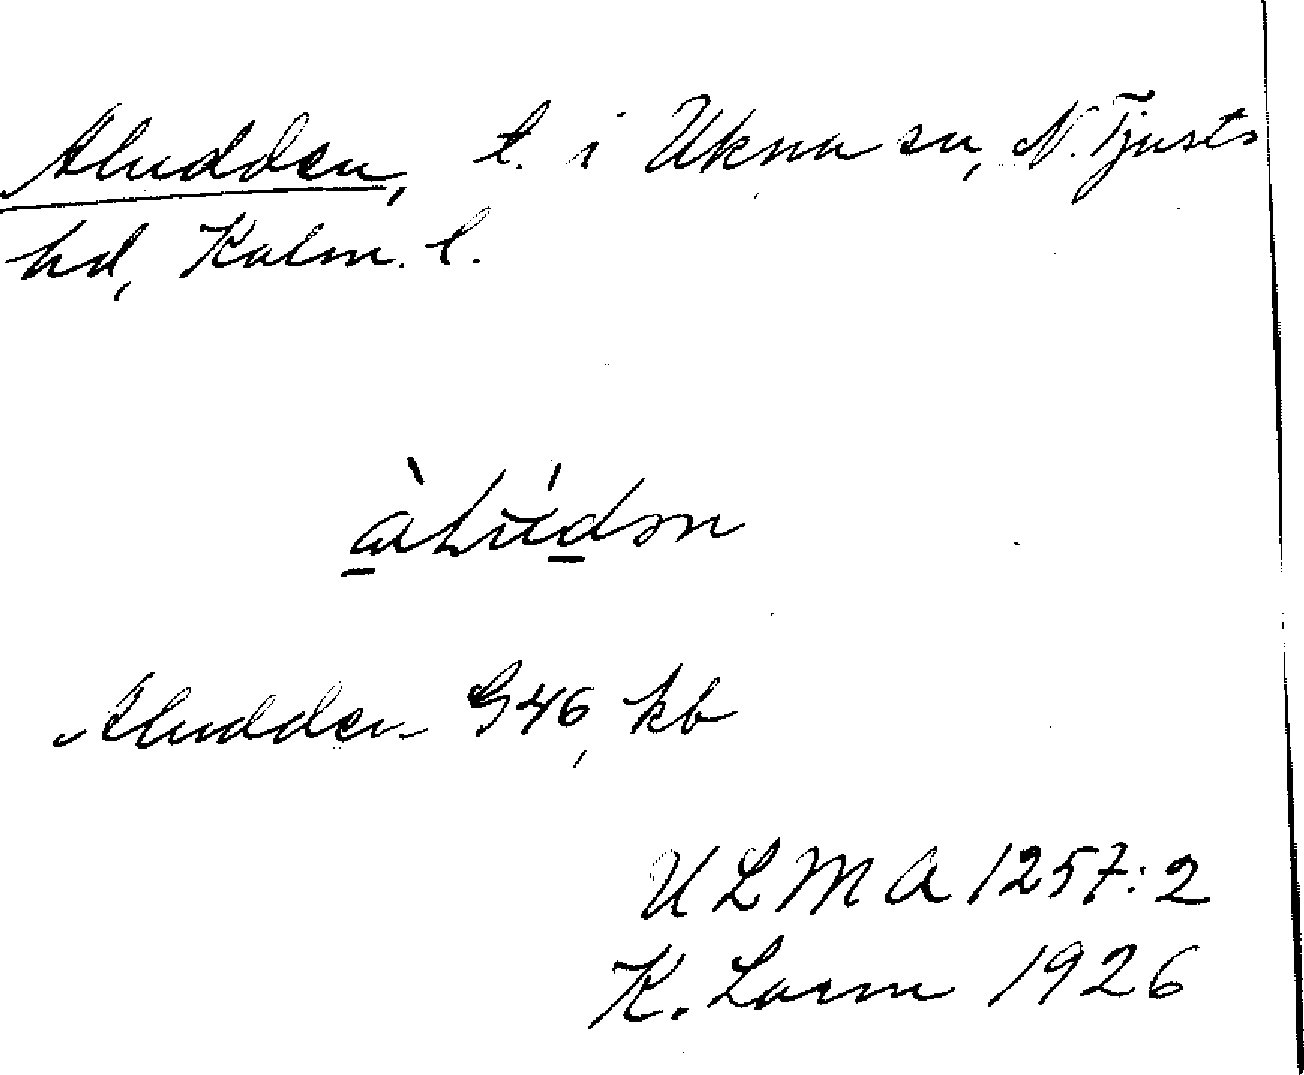 Aludden, t. i Ukna sn, N. Tjusts
hd, Kalm. l.
Aludden G46, kb
ULMA 1257:2
K. Lorm 1926